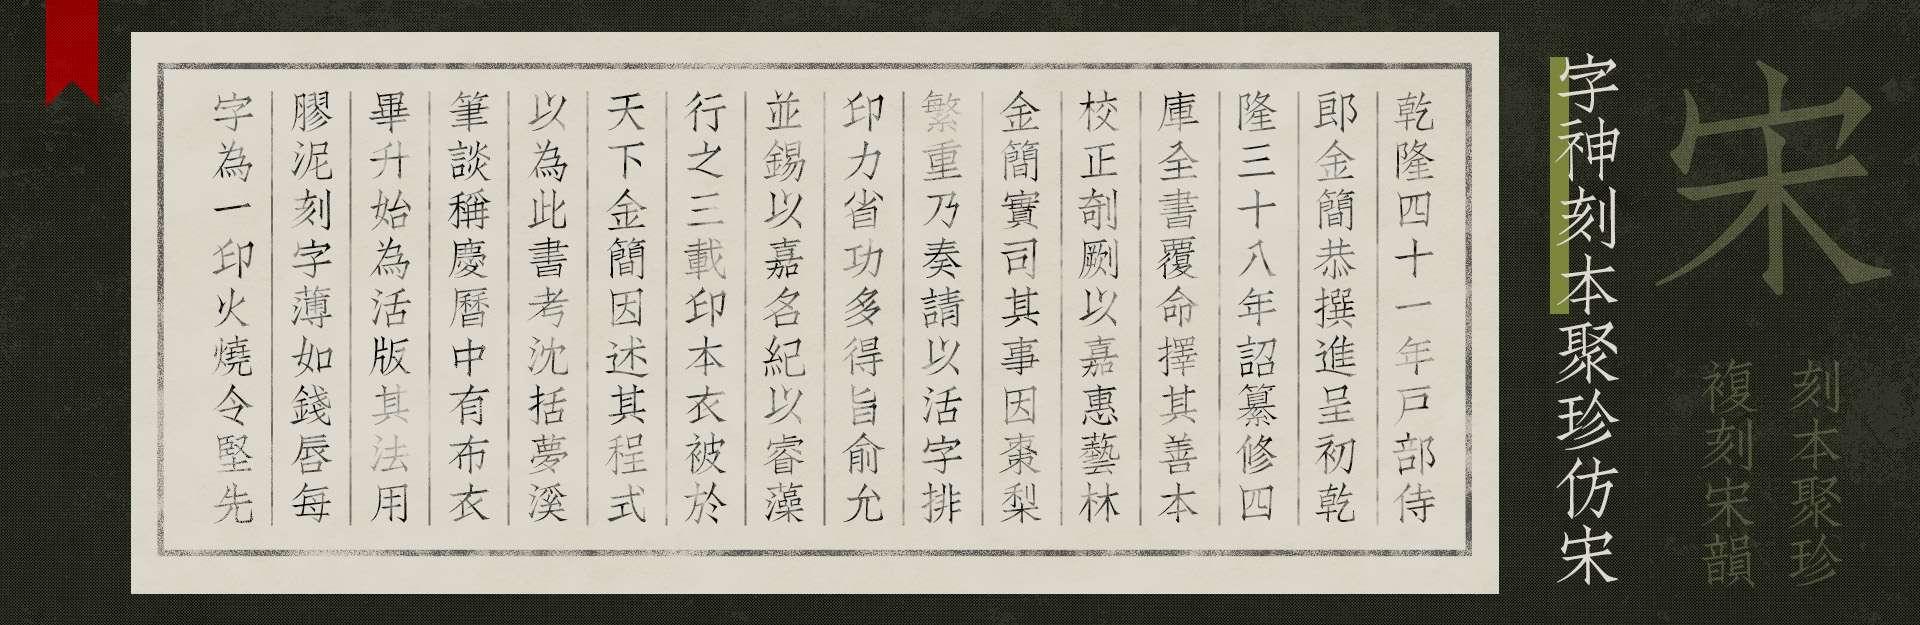 宋
刻本聚珍
複刻宋韻
字神刻本聚珍仿宋
乾隆四十一年戶部侍
郎金簡恭撰進呈初乾
隆三十八年詔纂修四
庫全書覆命擇其善本
校正剞劂以嘉惠藝林
金簡實司其事因棗梨
繁重乃奏請以活字排
印力省功多得旨俞允
並錫以嘉名紀以睿藻
行之三載印本衣被於
天下金簡因述其程式
以為此書考沈括夢溪
筆談稱慶曆中有布衣
畢升始為活版其法用
膠泥刻字薄如錢唇每
字為一印火燒令堅先